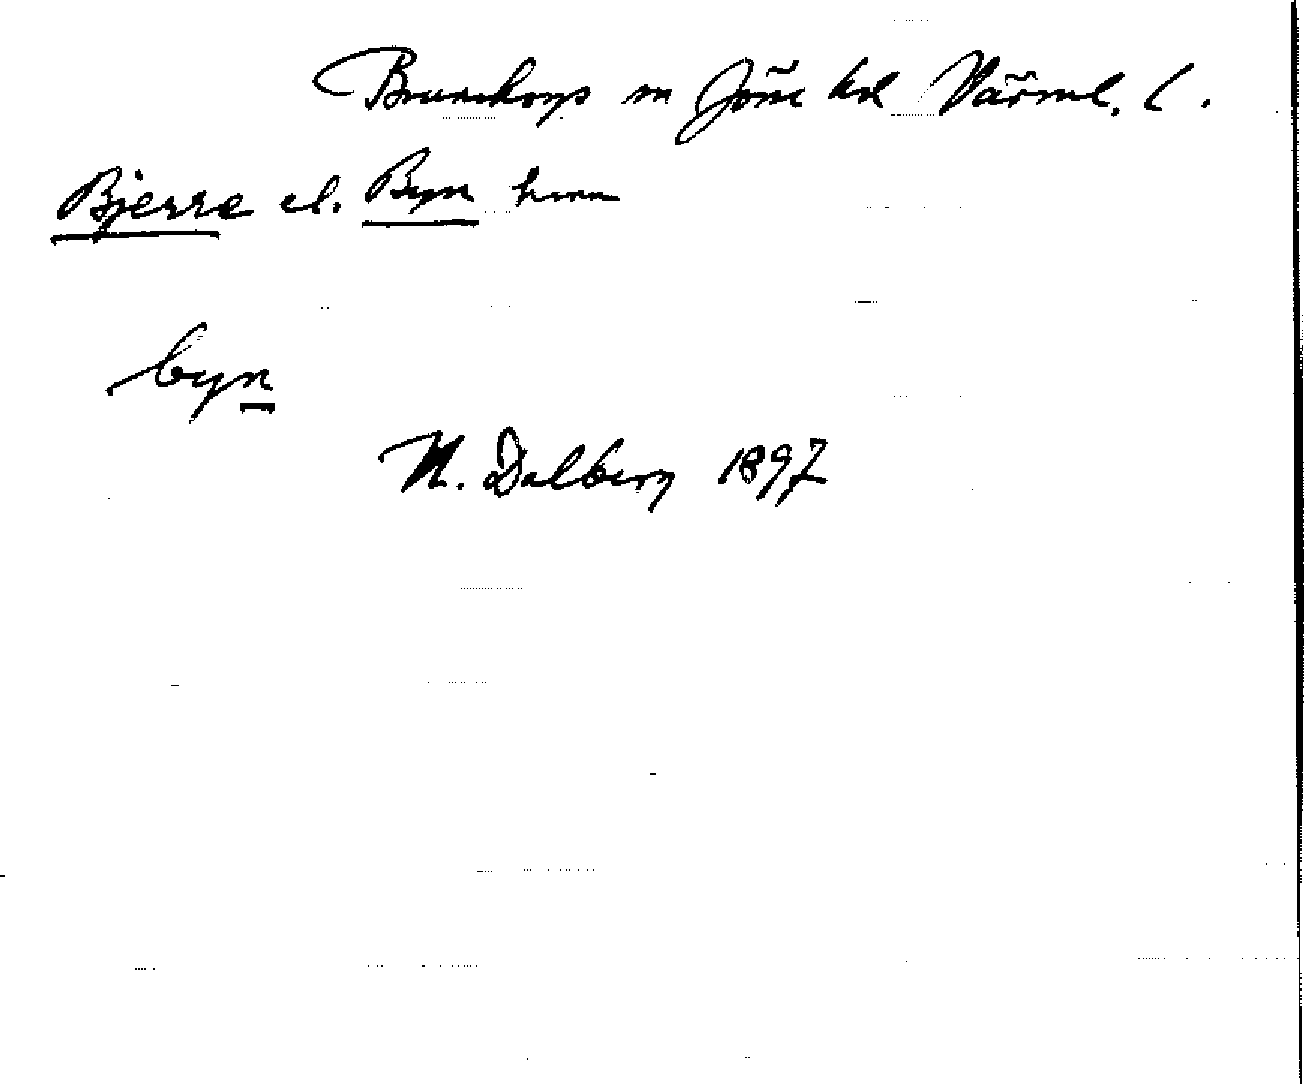 Brunskogs sn Jösse hd Värml. l.
Bjerre el. Byn hmn
byn
N. Dalberg 1897